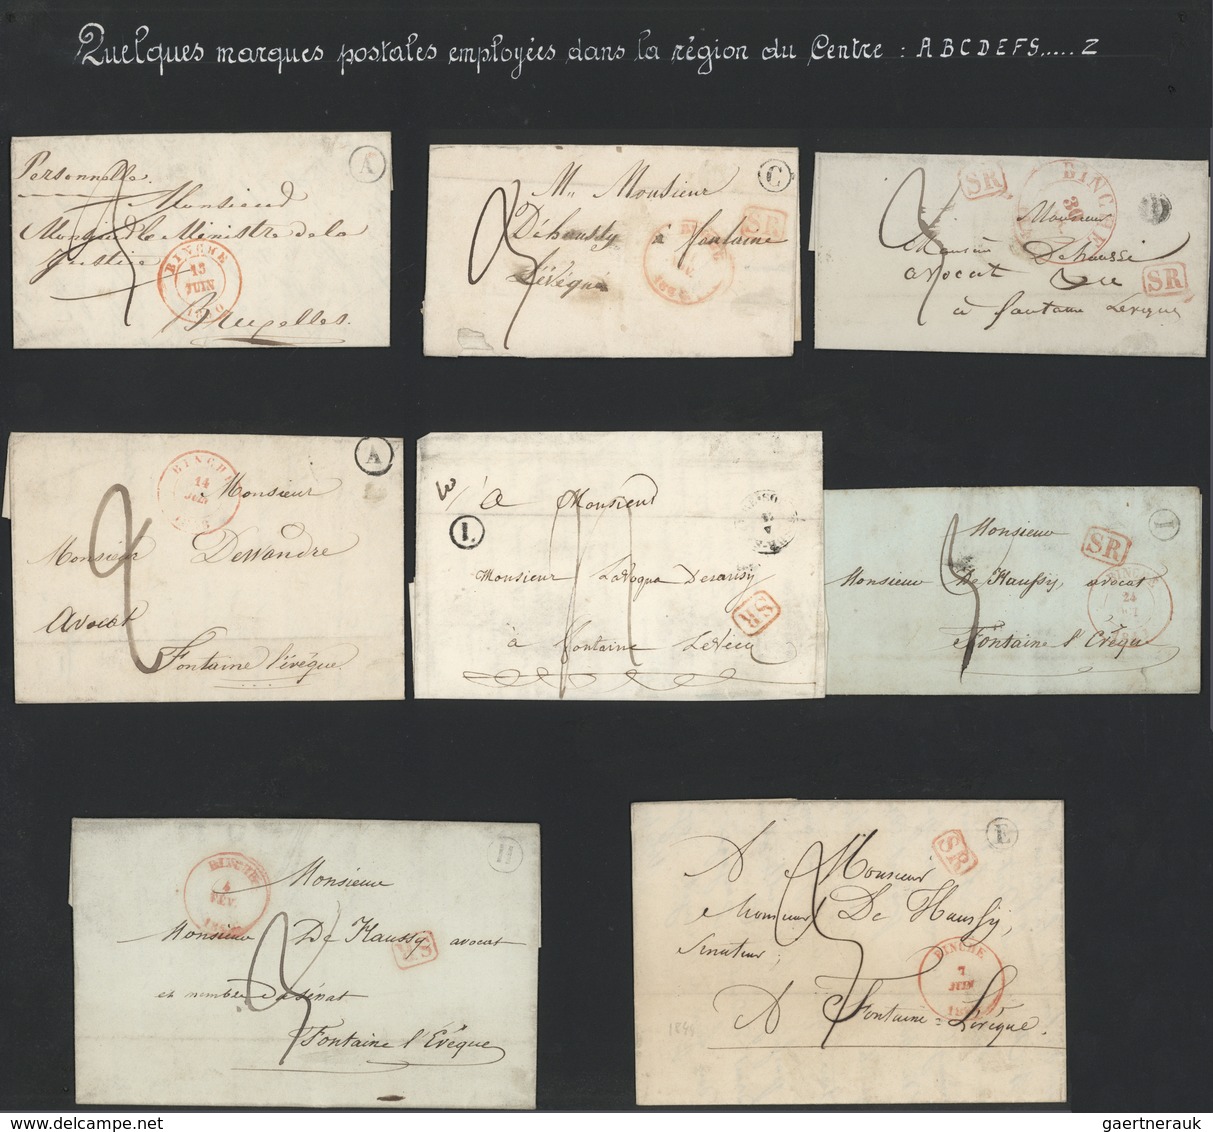 Quelques marques postales employées dans la région du Centre : A B C D E F G ..... Z
Personnelle.
A
Monsieur
Monsieur le Ministre de la
Justice
BINCHE
13
JUIN
Bruxelles.
C
Mr Monsieur
SR
Déhaussy à fontaine
Lévêque
SR
BINCHE
30
D
Monsieur
Monsieur Dehaussi
avocat
SR
à fontaine Leveque
A
BINCHE
14
Monsieur
Monsieur Dewandre
Avocat
Fontaine l'évêque.
A Monsieur
I.
Monsieur
SR
à fontaine
Monsieur
I
SR
Monsieur De Haussy, avocat
BINCHE
24
Fontaine l'Evêque
H
BINCHE
4
FEV.
Monsieur
Monsieur De Haussy avocat
SR
et membre du sénat
Fontaine l'Evêque
E
SR
A Monsieur
Monsieur De Haussy,
Sénateur,
BINCHE
7
JUIN
A Fontaine-Lévêque.
1846
gaertnerauk @ delcampe.net